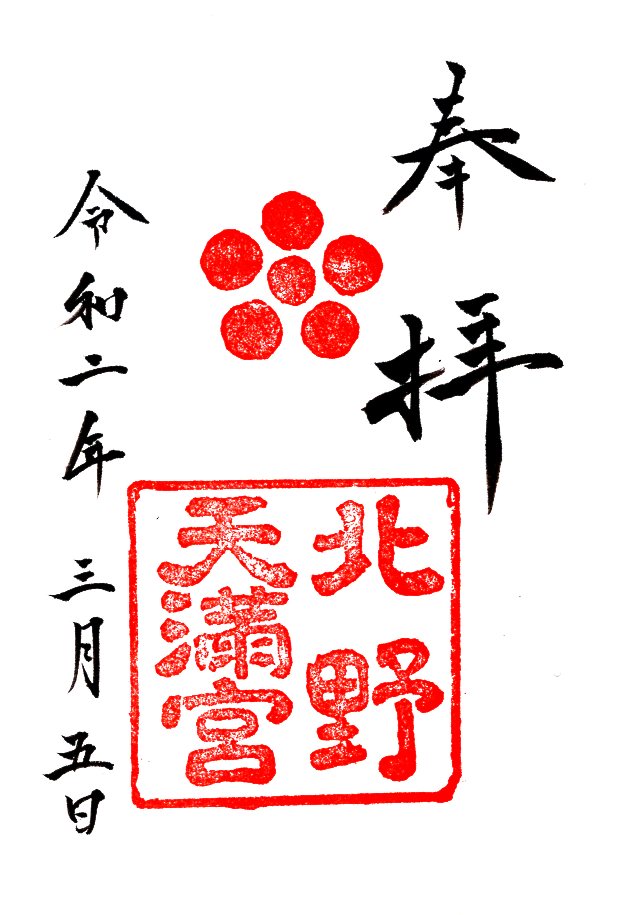 奉拝
北野
天満宮
令和二年三月五日